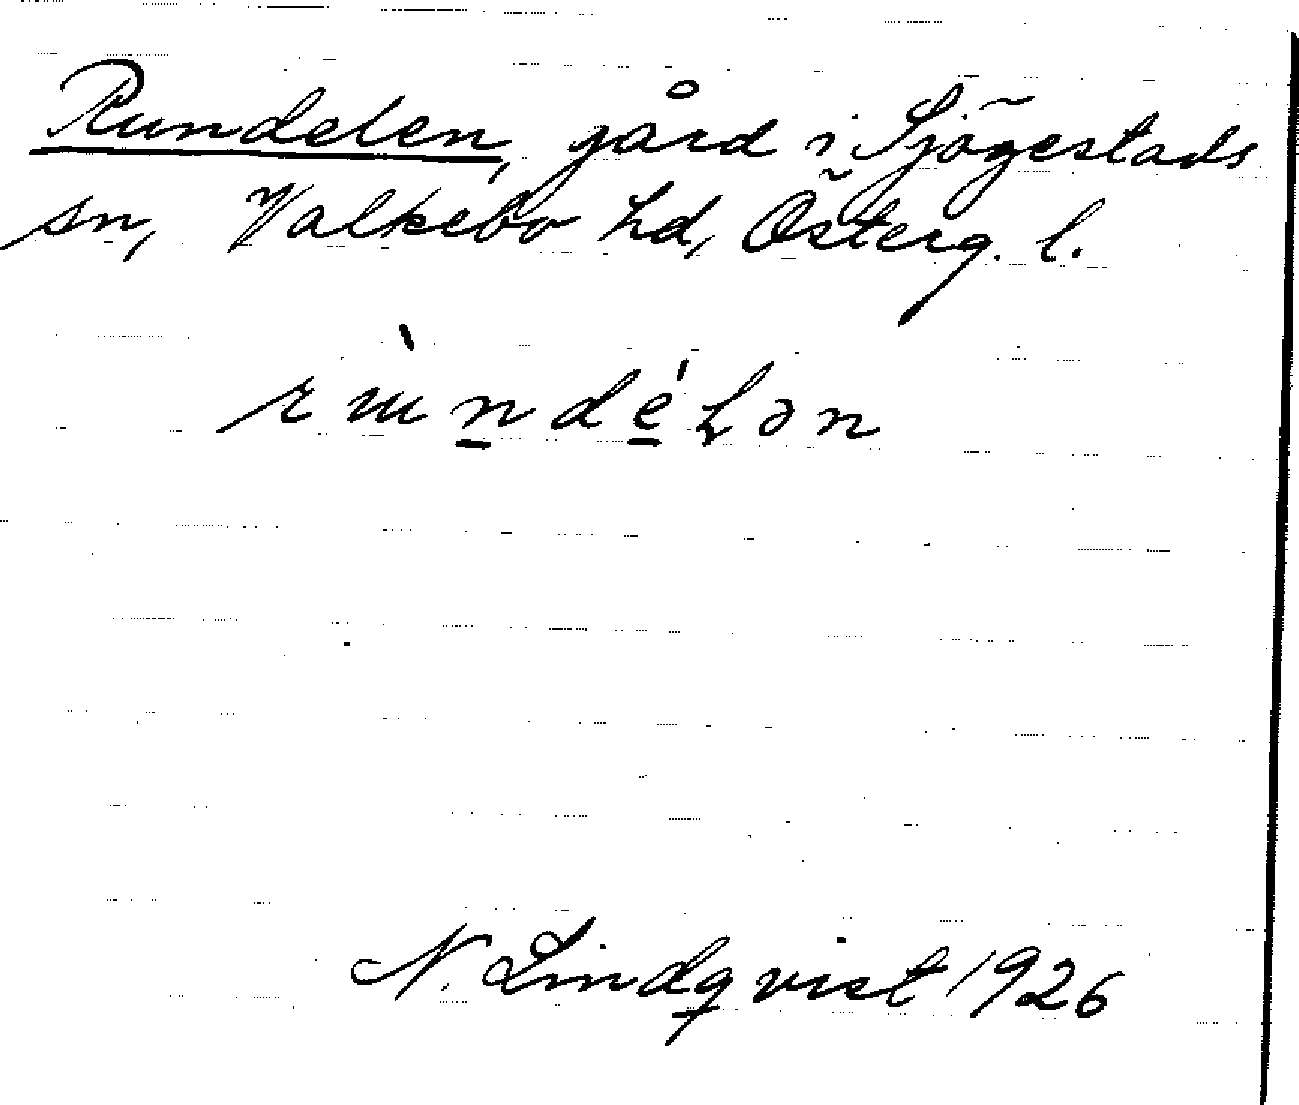 Rundelen, gård i Sjögestads
sn, Valkebo hd, Österg. l.
N. Lindqvist 1926